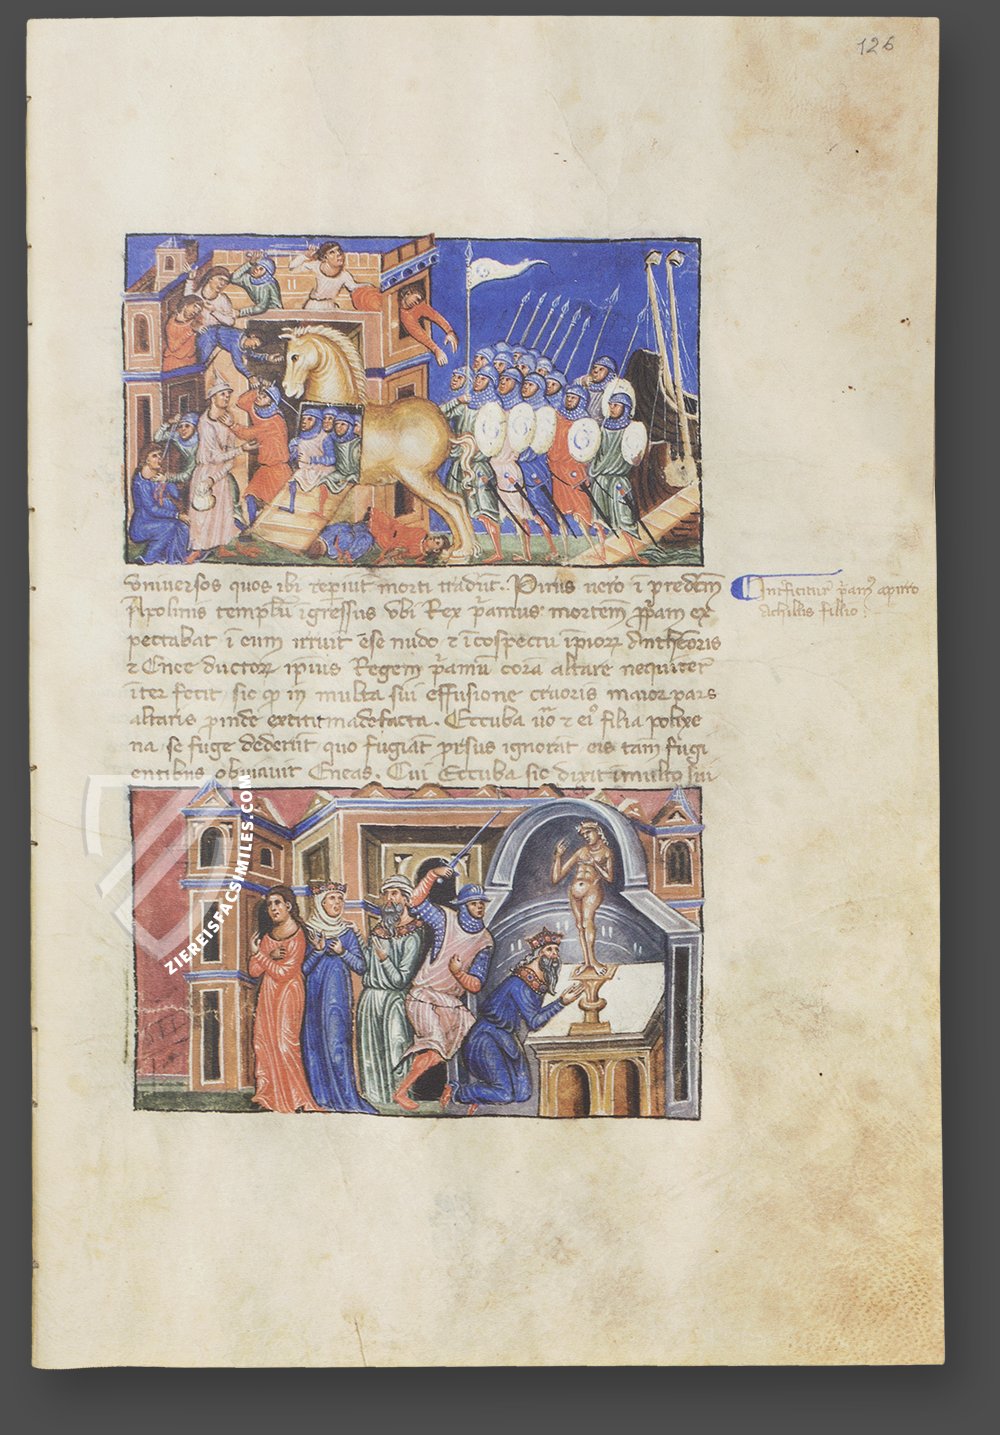 126
universos quos ibi repiūt morti tradūt. Pirus uero ī predc̄m
Apolinis templū īgressus ubi Rex p̄amus mortem p̄pam ex
pectabat ī eum irruit ēse nudo ⁊ ī cōspectu ip̄ior Antheoris
⁊ Enee ductor ipsius Regem p̄amū corā altare nequiter
īter fecit sic ꝙ in multa sui effusione cruoris maior pars
altaris ꝓinde extitit madefacta. Eccuba u̅o ⁊ eiꝰ filia polixe
na se fuge dederūt quo fugiāt pr̄sus ignorāt eis tam̄ fugi
entibus obuiauit Eneas. Cui Eccuba sic dixit ī multo sui
Int̄ficitur p̄amꝰ a pirro
Achillis fillio:
ZIEREISFACSIMILES.COM